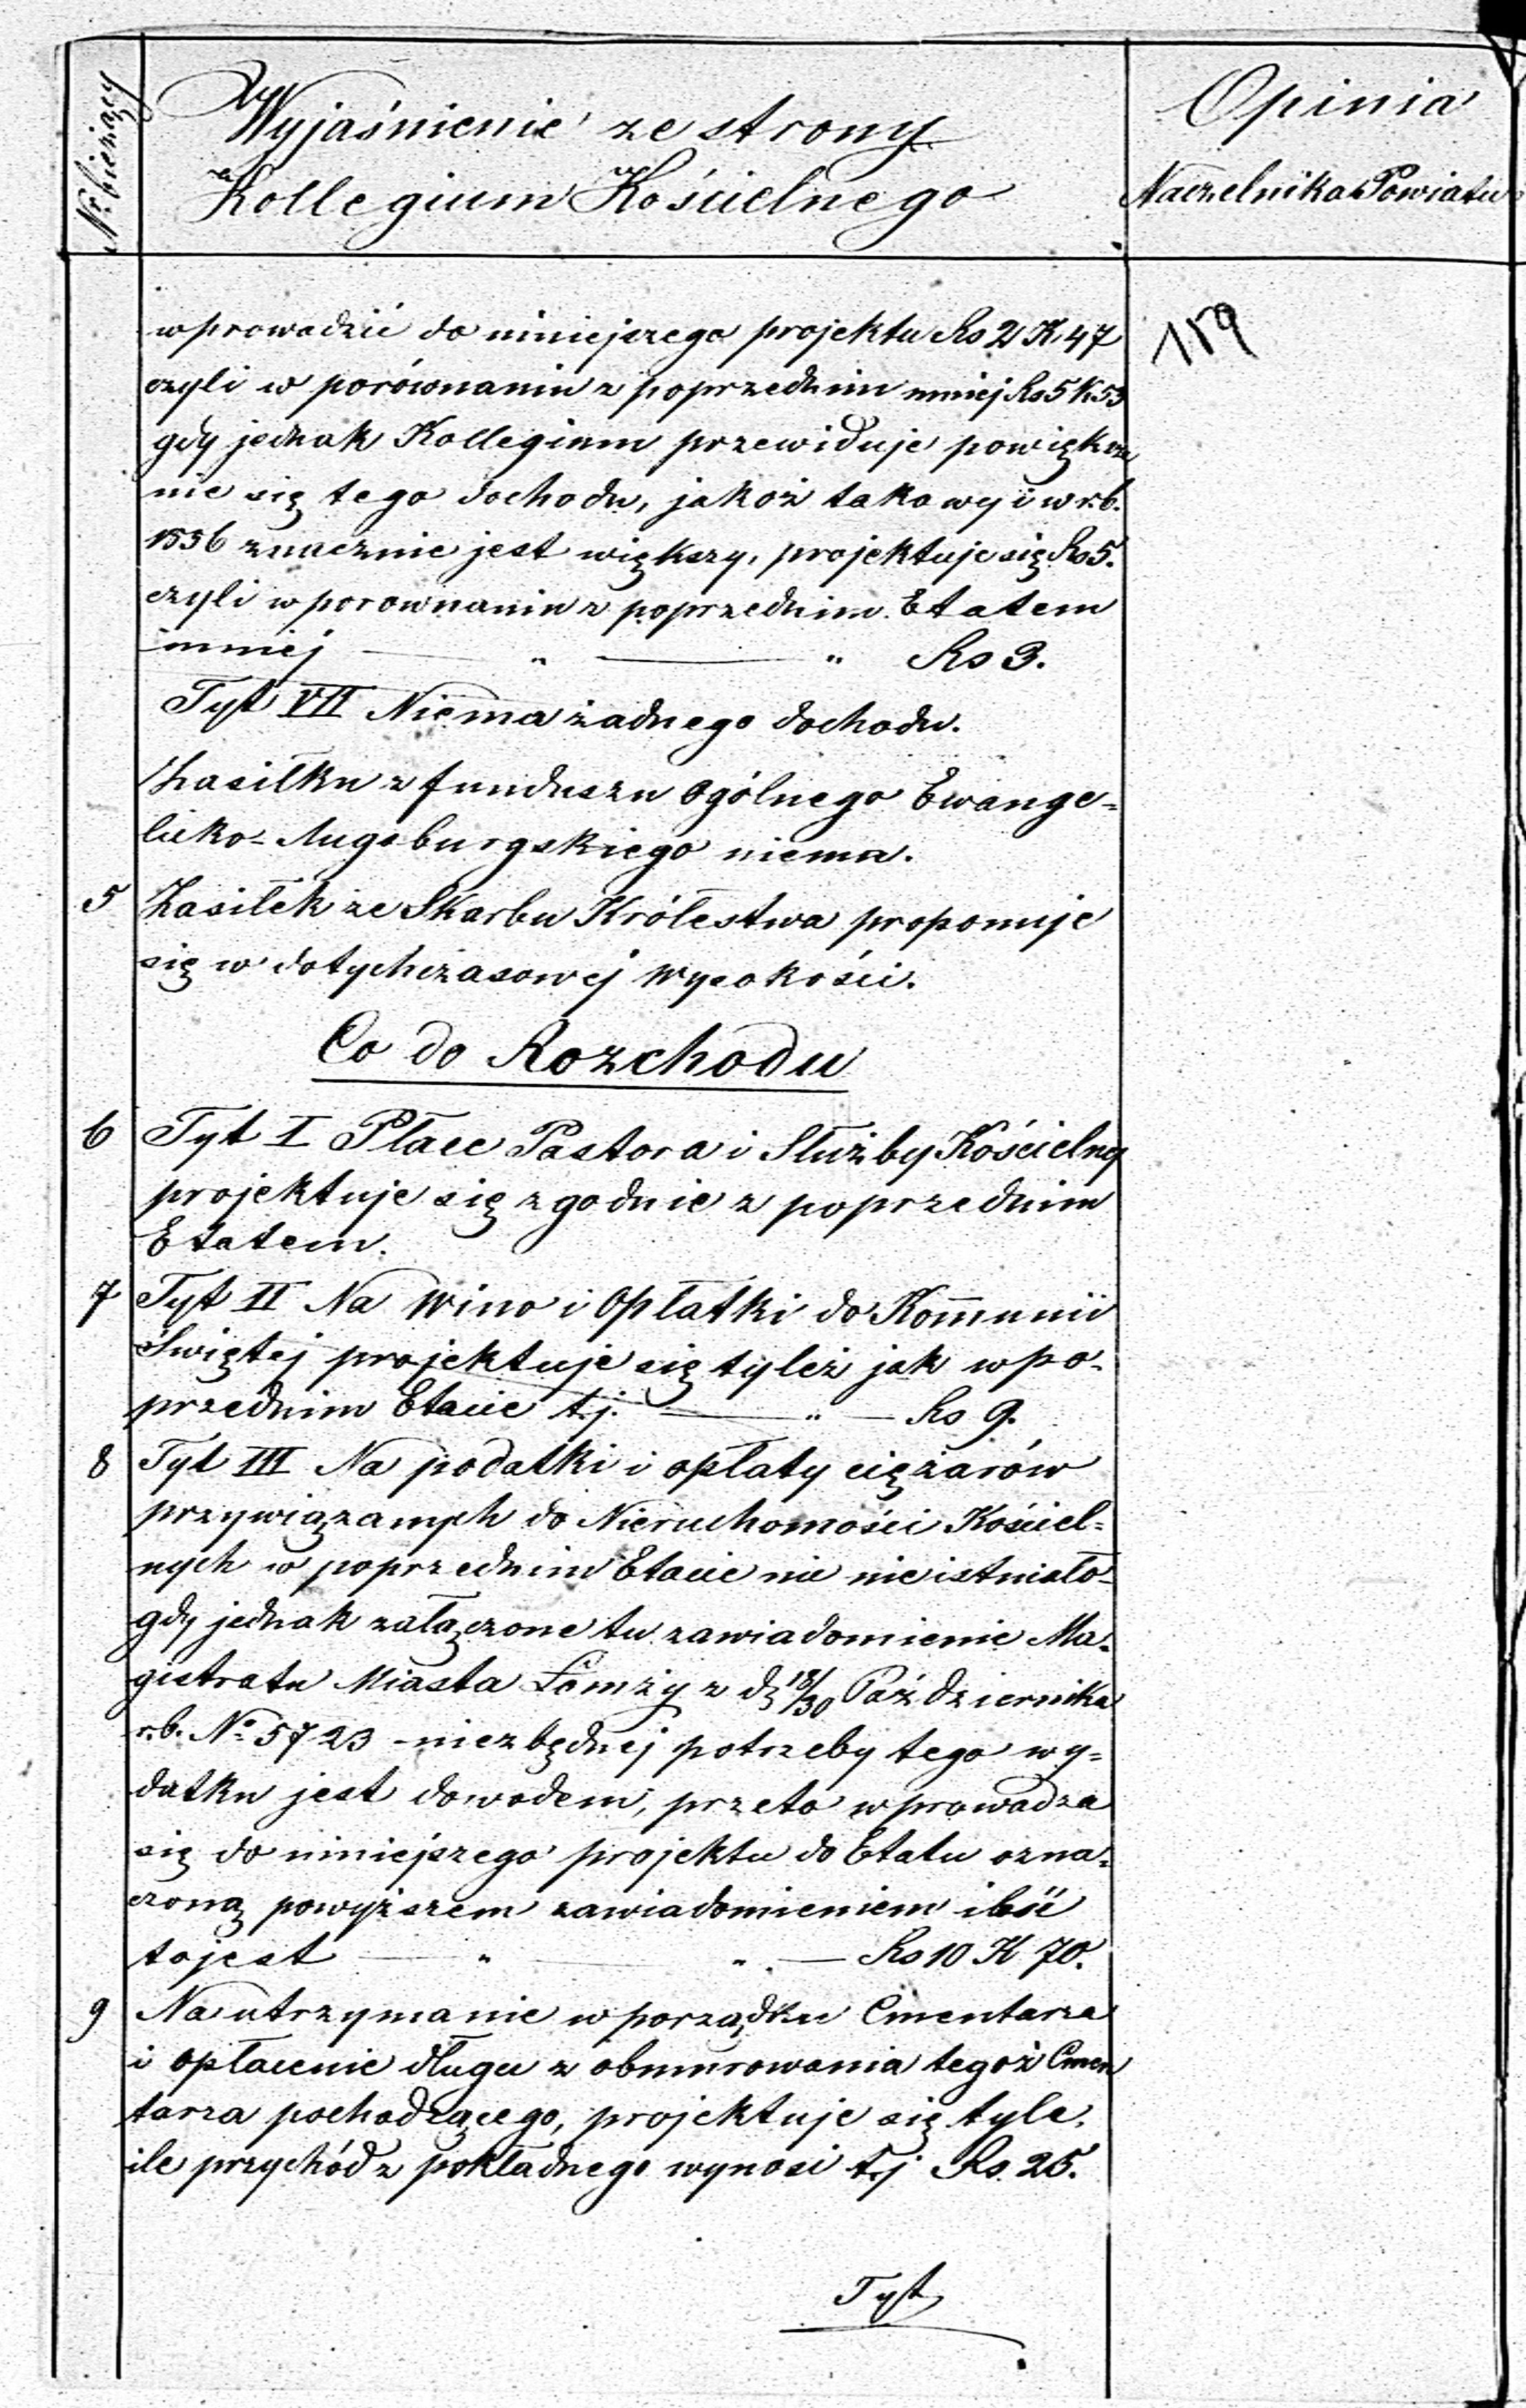 Nr. bieżący
Wyjaśnienie ze strony
Kollegium Kościelnego
Opinia
Naczelnika Powiatu
159
wprowadzić do niniejszego projektu Rs 2 K. 47
czyli w porównaniu z poprzednim mniej Rs 5 K 53
gdy jednak Kollegium przewiduje powiększe
nie się tego dochodu, jakoż takowy i w r.b.
1856 znacznie jest większy, projektuje się Rs 5.
czyli w porownaniu z poprzednim Etatem
mniej — „ — „ Rs 3.
Tyt VII Niema żadnego dochodu.
Zasiłku z funduszu Ogólnego Ewange-
licko-Augsburgskiego niema.
5 Zasiłek ze Skarbu Królestwa proponuje
się w dotychczasowej wysokości.
Co do Rozchodu
6 Tyt I Płace Pastora i Służby Kościelnej
projektuje się zgodnie z poprzednim
Etatem.
7 Tyt II Na Wino i Opłatki do Kom̄unii
Swiętej projektuje się tyleż jak w po-
przednim Etacie t.j. — „ — Rs 9.
8 Tyt III Na podatki i opłaty ciężarów
przywiązanych do Nieruchomości Kościel-
nych w poprzednim Etacie nic nie istniało-
gdy jednak załączone tu zawiadomienie Ma-
gistratu Miasta Łomży z d. 18/30 Października
r.b. No 5723 niezbędnej potrzeby tego wy-
datku jest dowodem, przeto wprowadza
się do niniejszego projektu do Etatu ozna-
czoną powyższem zawiadomieniem ilość
to jest — „ — „ — Rs 10 K 70.
9 Na utrzymanie w porządku Cmentarza
i opłacenie długu z obmurowania tegoż Cmen
tarza pochodzącego, projektuje się tyle,
ile przychód z pokładnego wynosi t.j Rs. 25.
Tyt